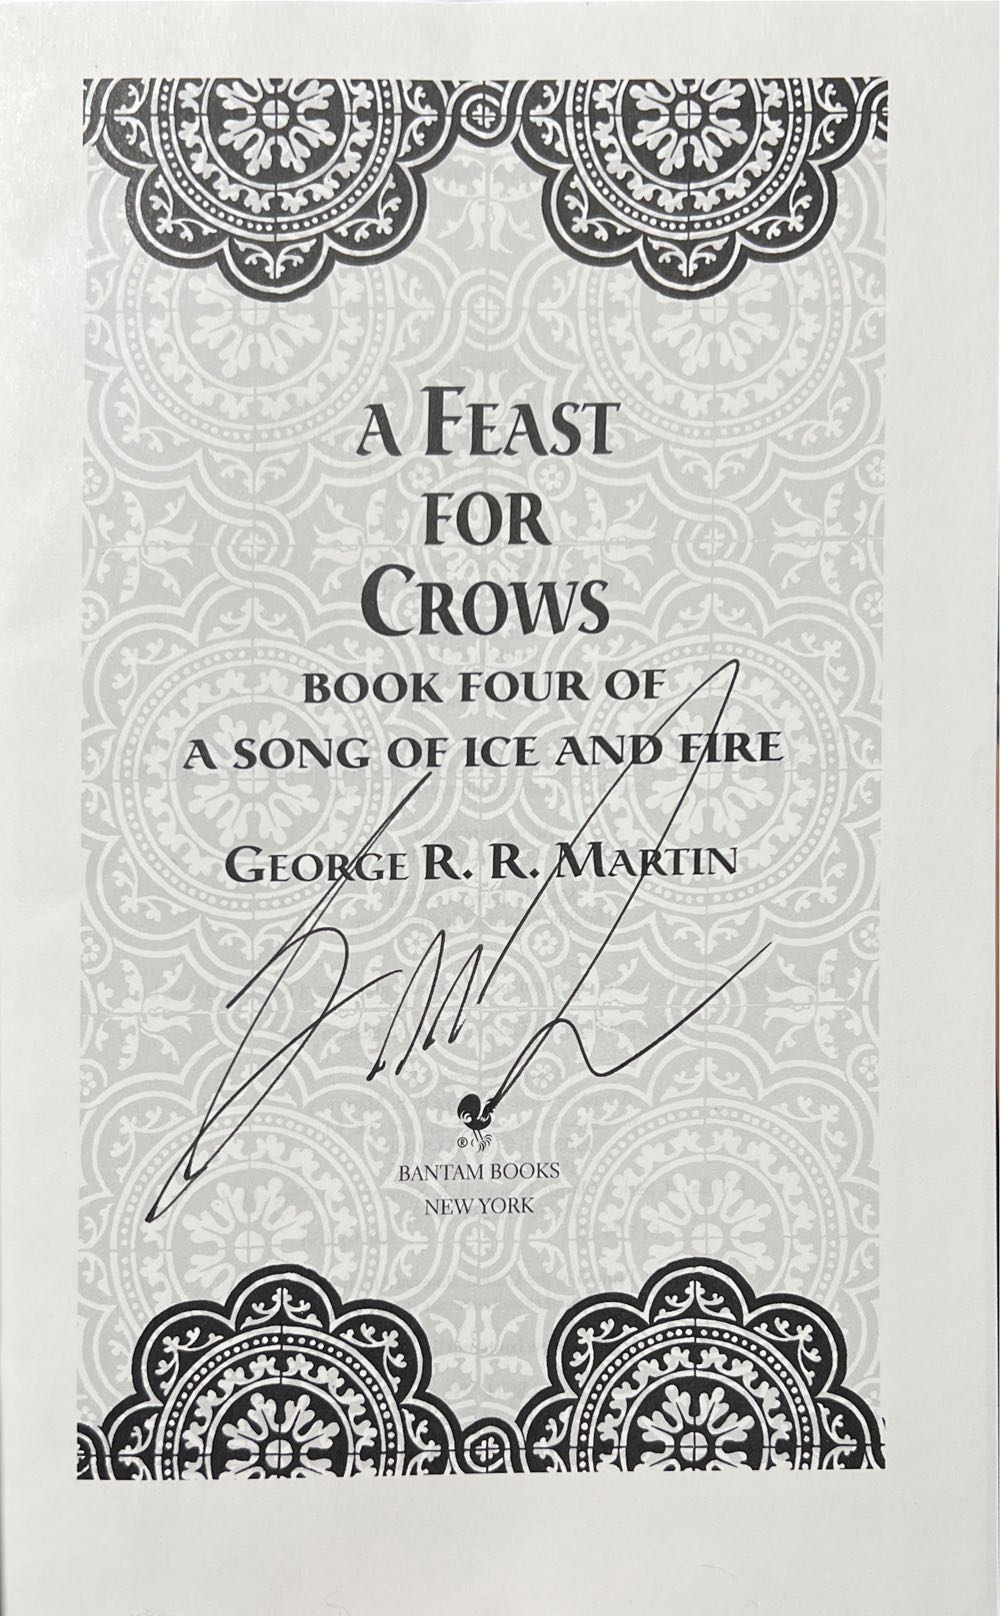 A FEAST
FOR
CROWS
BOOK FOUR OF
A SONG OF ICE AND FIRE
GEORGE R. R. MARTIN
®
BANTAM BOOKS
NEW YORK